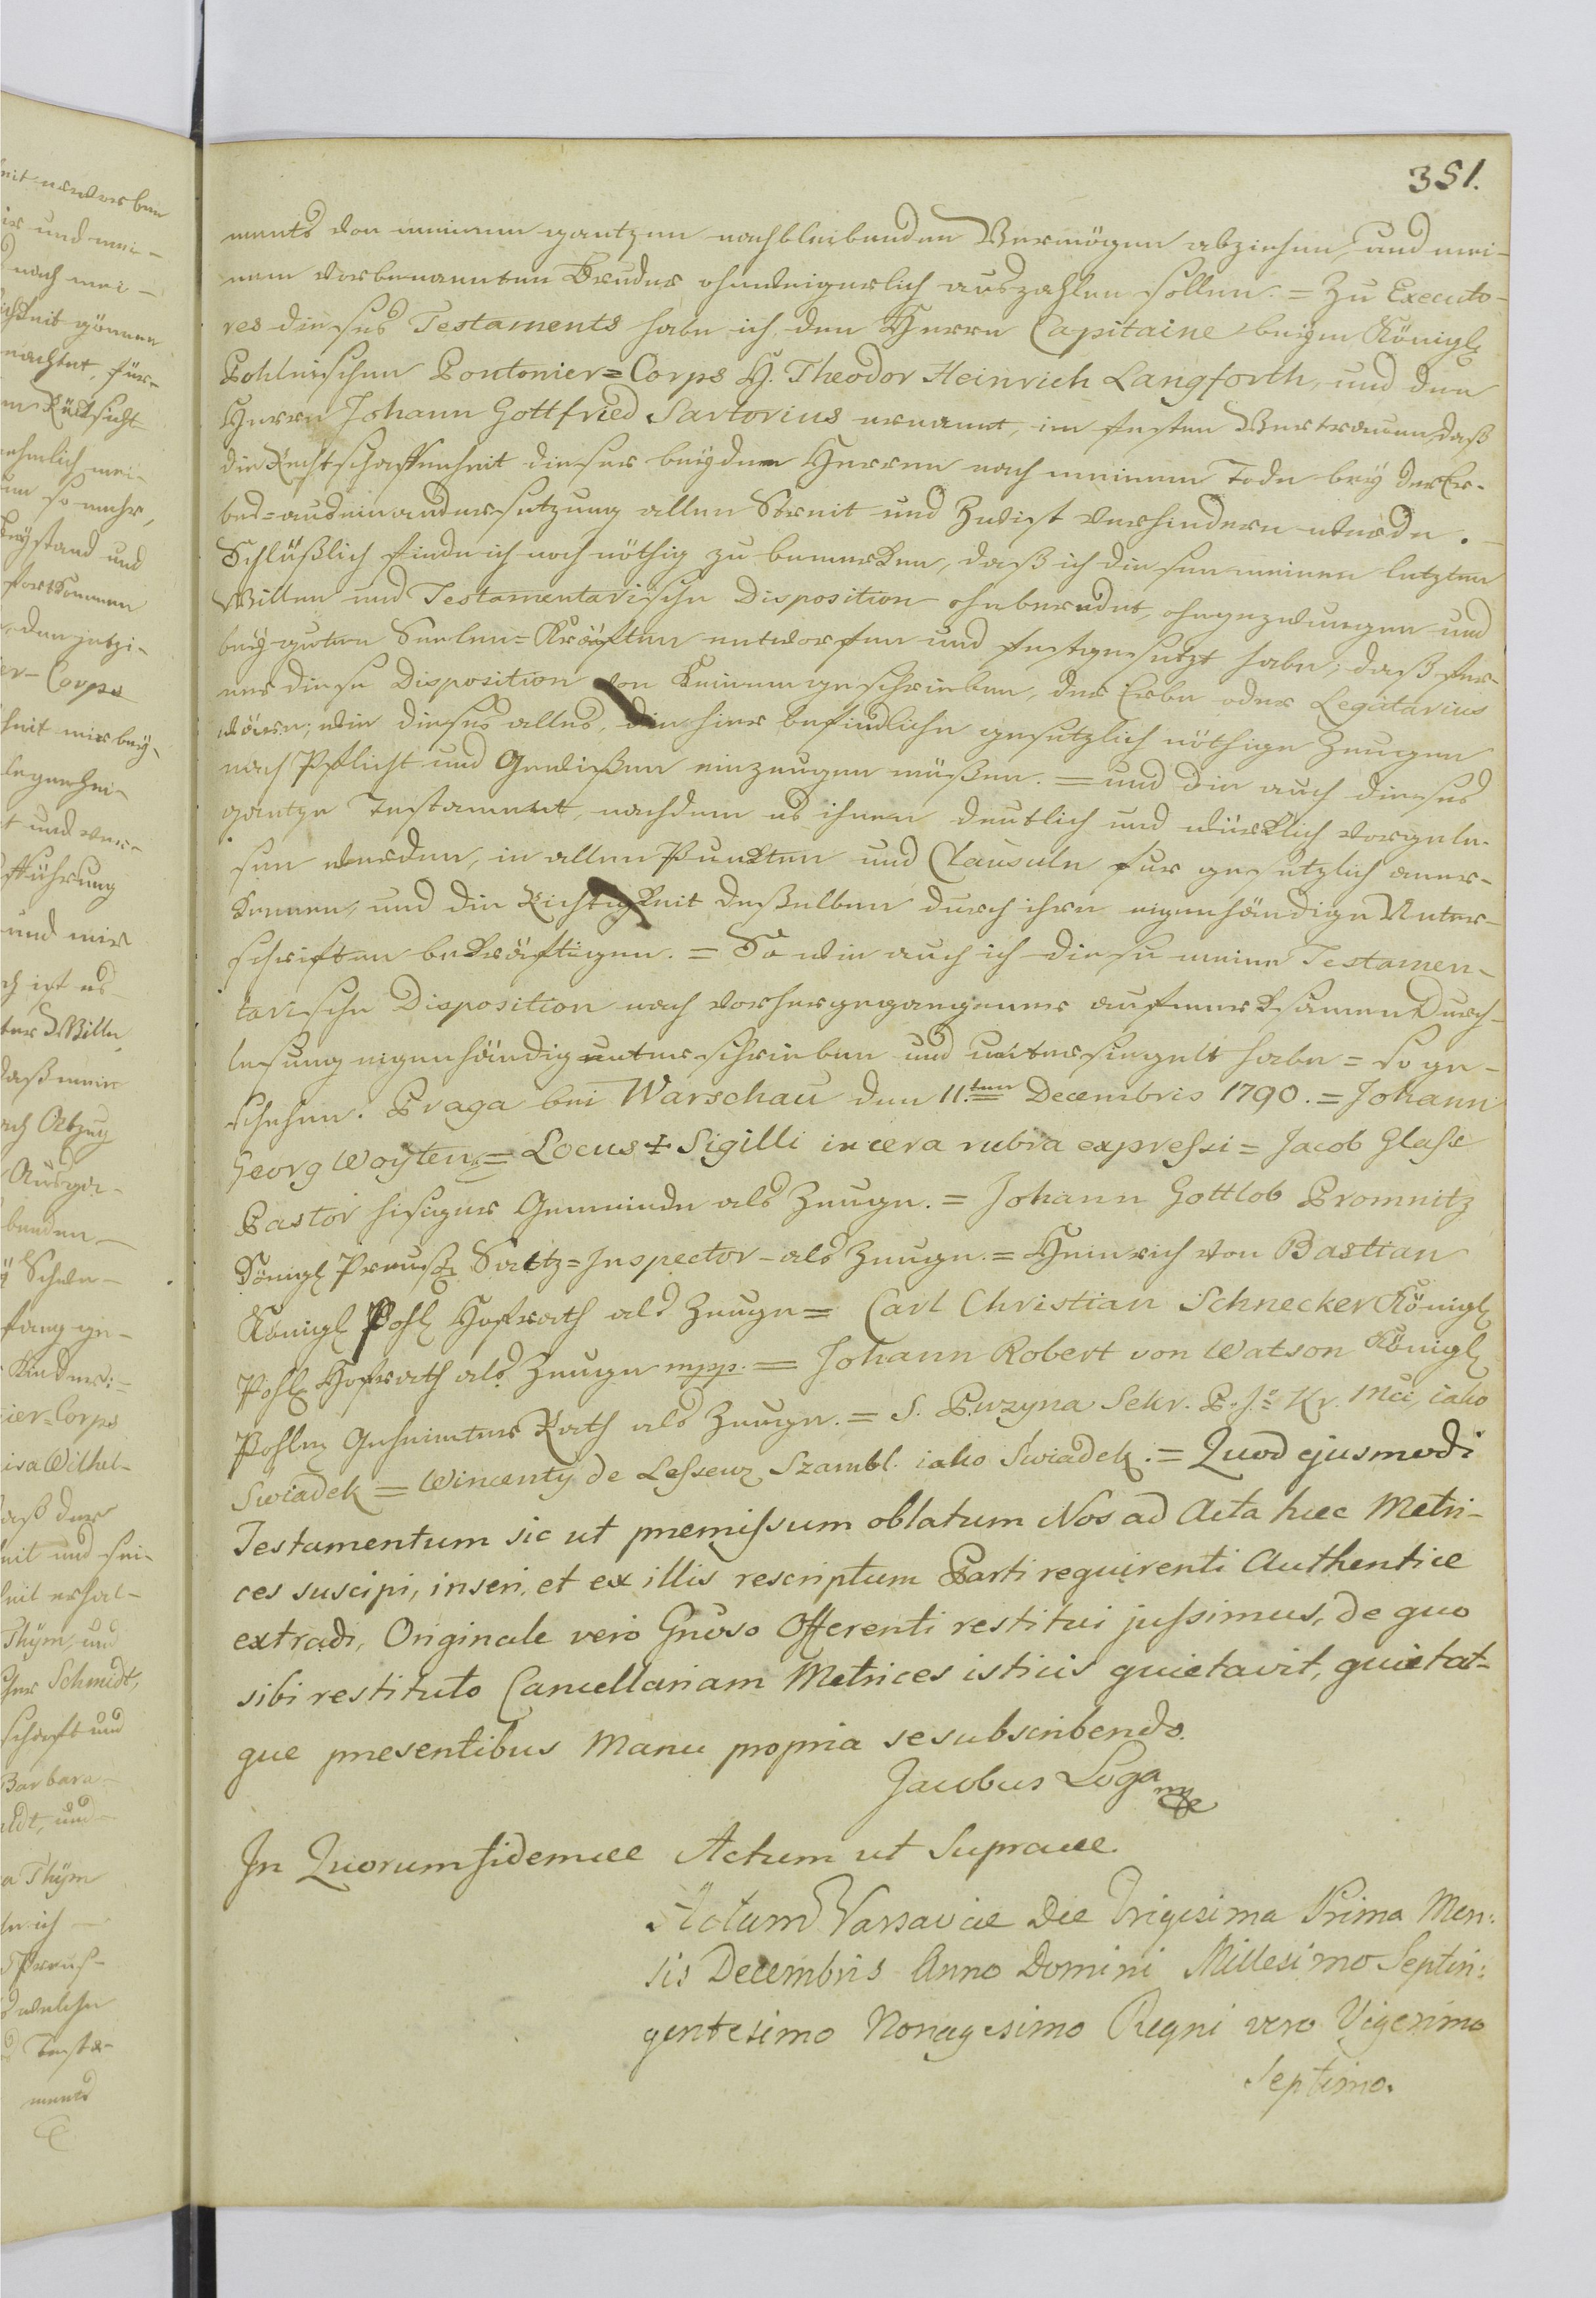 351.
ments von meinem gantzen nachbleibenden Vermögen abziehen, und mei-
nem vorbenannten Bruder ohnweigerlich auszahlen sollen. = Zu Executo-
res dieses Testaments habe ich den Herrn Capitaine beÿm Königl
Pohlnischen Pontonier=Corps H. Theodor Heinrich Langforth, und den
Herrn Johann Gottfried Sartorius ernannt, im festen Vertrauen, daß
die Rechtschaffenheit dieser beÿden Herren nach meinem Tode beÿ der Er-
bes=auseinandersetzung allen Streit und Zwist verhindern werde. –
Schlüßlich finde ich noch nöthig zu bemerken, daß ich diesen meinen letzten
Willen und Testamentarische Disposition ohnberedet, ohngezwungen und
beÿ guten Seelen=Kräften entworfen und festgesetzt habe; daß fer-
ner diese Disposition von Keinem geschrieben, der Erbe oder Legatarius
wäre; wie dieses alles, die hier befindliche gesetzlich nöthige Zeugen
nach Pflicht und Gewißen einzeugen müßen. = und die auch dieses
gantze Testament, nachdem es ihnen deutlich und würklich vorgele-
sen werden, in allen Punkten und Clausuln fur gesetzlich aner-
kennen, und die Richtigkeit deßelben durch ihre eigenhändige Unter-
schriften bekräftigen. = So wie auch ich diese meine Testamen-
tarische Disposition nach vorhergegangener aufmerksamen Durch-
lesung eigenhändig unterschrieben und untersiegelt habe = so ge-
schehen. Praga bei Warschau den 11.ten Decembris 1790. = Johann
Georg Woyten = Locus + Sigilli in cera rubra expressi = Jacob Glase
Pastor hisiger Gemeinde als Zeuge. = Johann Gottlob Promnitz
Königl Preuß Saltz=Inspector – als Zeuge. = Heinrich von Bastian
Königl Pohl Hofrath als Zeuge = Carl Christian Schnecker Königl
Pohl Hofrath als Zeuge mpp. = Johann Robert von Watson Königl
Pohln Geheimter Rath als Zeuge. = S. Puzyna Sekr. P. J. Kr. Mci, iako
Swiadek = Wincenty de Lesseur Szambl. iako Swiadek. = Quod ejusmodi
Testamentum sic ut premissum oblatum Nos ad Acta hæc Metri-
ces suscipi, inseri, et ex illis rescriptum Parti requirenti Authentice
extradi, Originale vero Gnoso Offerenti restitui jussimus, de quo
sibi restituto Cancellariam Metrices istius quietavit, quietat-
que presentibus Manu propria se subscribendo.
Jacobus Loga
In Quorum fidem &c Actum ut Supra &c.
Actum Varsaviæ Die Trigesima Prima Men:
sis Decembris Anno Domini Millesimo Septin:
gentesimo Nonagesimo Regni vero Vigesimo
Septimo.